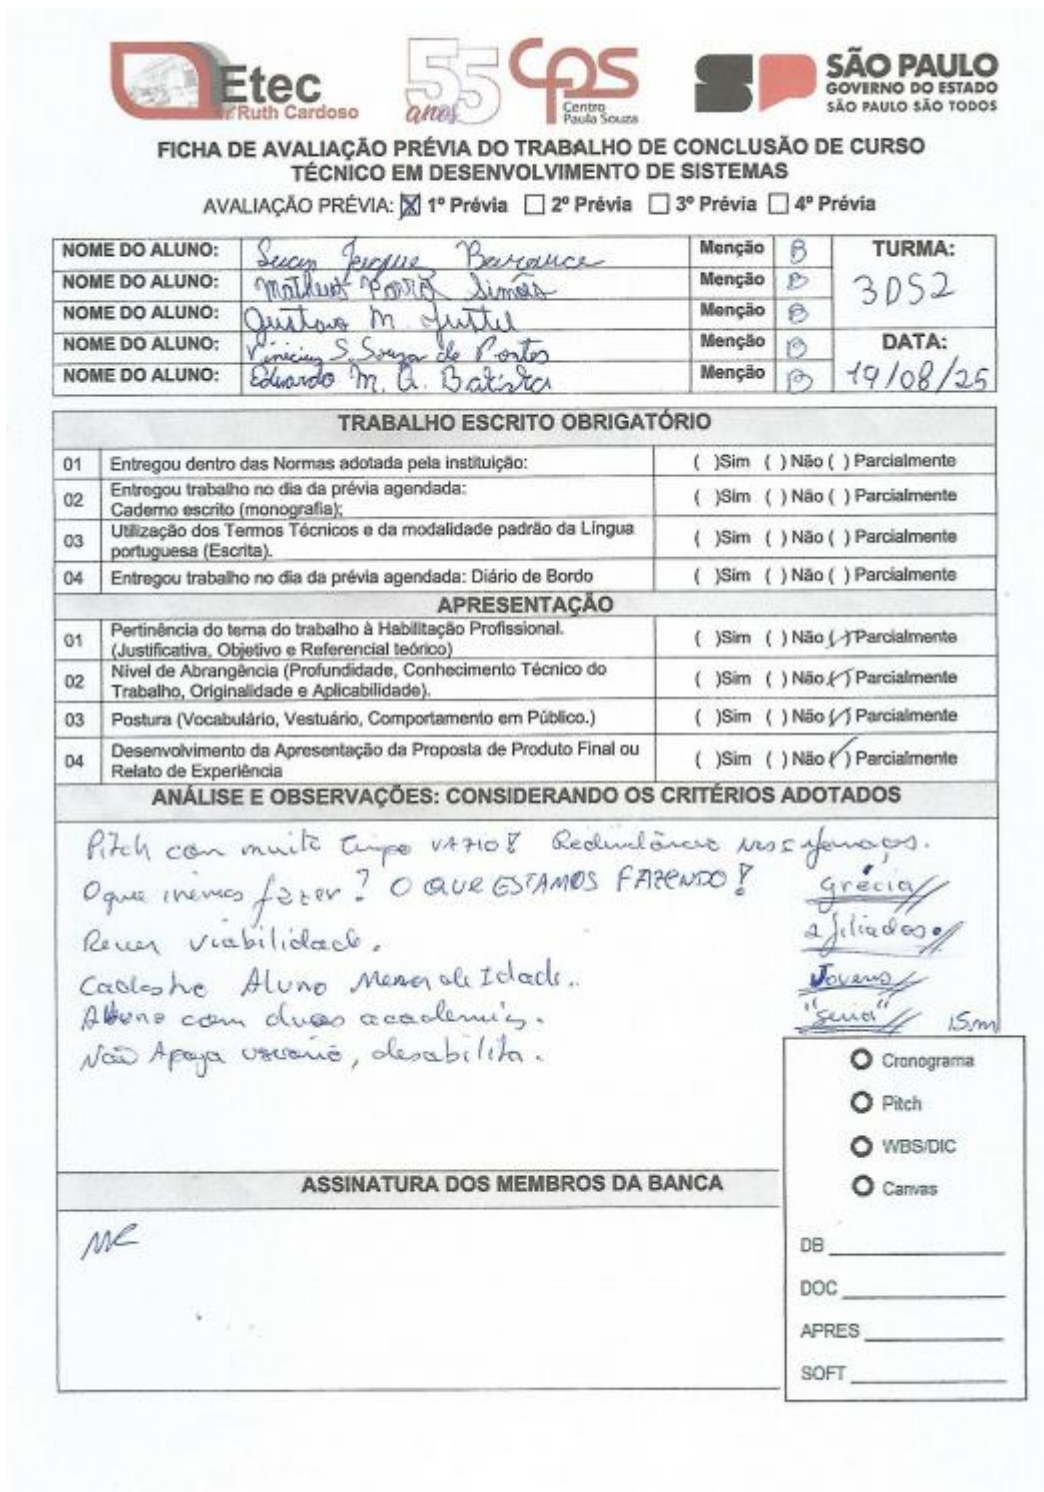 Etec
Ruth Cardoso
55 anos
CPS
Centro
Paula Souza
SÃO PAULO
GOVERNO DO ESTADO
SÃO PAULO SÃO TODOS
FICHA DE AVALIAÇÃO PRÉVIA DO TRABALHO DE CONCLUSÃO DE CURSO
TÉCNICO EM DESENVOLVIMENTO DE SISTEMAS
AVALIAÇÃO PRÉVIA: ☒ 1º Prévia ☐ 2º Prévia ☐ 3º Prévia ☐ 4º Prévia
NOME DO ALUNO: Menção B TURMA:
NOME DO ALUNO: Matheus Simões Menção B 3DS2
NOME DO ALUNO: Gustavo M. Menção B
NOME DO ALUNO: Vinicius S. Souza de Pontes Menção B DATA:
NOME DO ALUNO: Eduardo M. A. Batista Menção B 19/08/25
TRABALHO ESCRITO OBRIGATÓRIO
01 Entregou dentro das Normas adotada pela instituição: ( )Sim ( ) Não ( ) Parcialmente
02 Entregou trabalho no dia da prévia agendada:
Caderno escrito (monografia); ( )Sim ( ) Não ( ) Parcialmente
03 Utilização dos Termos Técnicos e da modalidade padrão da Língua
portuguesa (Escrita). ( )Sim ( ) Não ( ) Parcialmente
04 Entregou trabalho no dia da prévia agendada: Diário de Bordo ( )Sim ( ) Não ( ) Parcialmente
APRESENTAÇÃO
01 Pertinência do tema do trabalho à Habilitação Profissional.
(Justificativa, Objetivo e Referencial teórico) ( )Sim ( ) Não (✓) Parcialmente
02 Nível de Abrangência (Profundidade, Conhecimento Técnico do
Trabalho, Originalidade e Aplicabilidade). ( )Sim ( ) Não (✓) Parcialmente
03 Postura (Vocabulário, Vestuário, Comportamento em Público.) ( )Sim ( ) Não (✓) Parcialmente
04 Desenvolvimento da Apresentação da Proposta de Produto Final ou
Relato de Experiência ( )Sim ( ) Não (✓) Parcialmente
ANÁLISE E OBSERVAÇÕES: CONSIDERANDO OS CRITÉRIOS ADOTADOS
Pitch com muito tempo VAZIO! Redundância nos
O que iremos fazer? O QUE ESTAMOS FAZENDO!
Grécia
Rever viabilidade.
afiliados
Cadastro Aluno Menor de Idade.
Jovens
Aluno com duas academias.
"Seria" 15m
Não Apaga usuario, desabilita.
Cronograma
Pitch
WBS/DIC
Canvas
ASSINATURA DOS MEMBROS DA BANCA
DB
DOC
APRES
SOFT